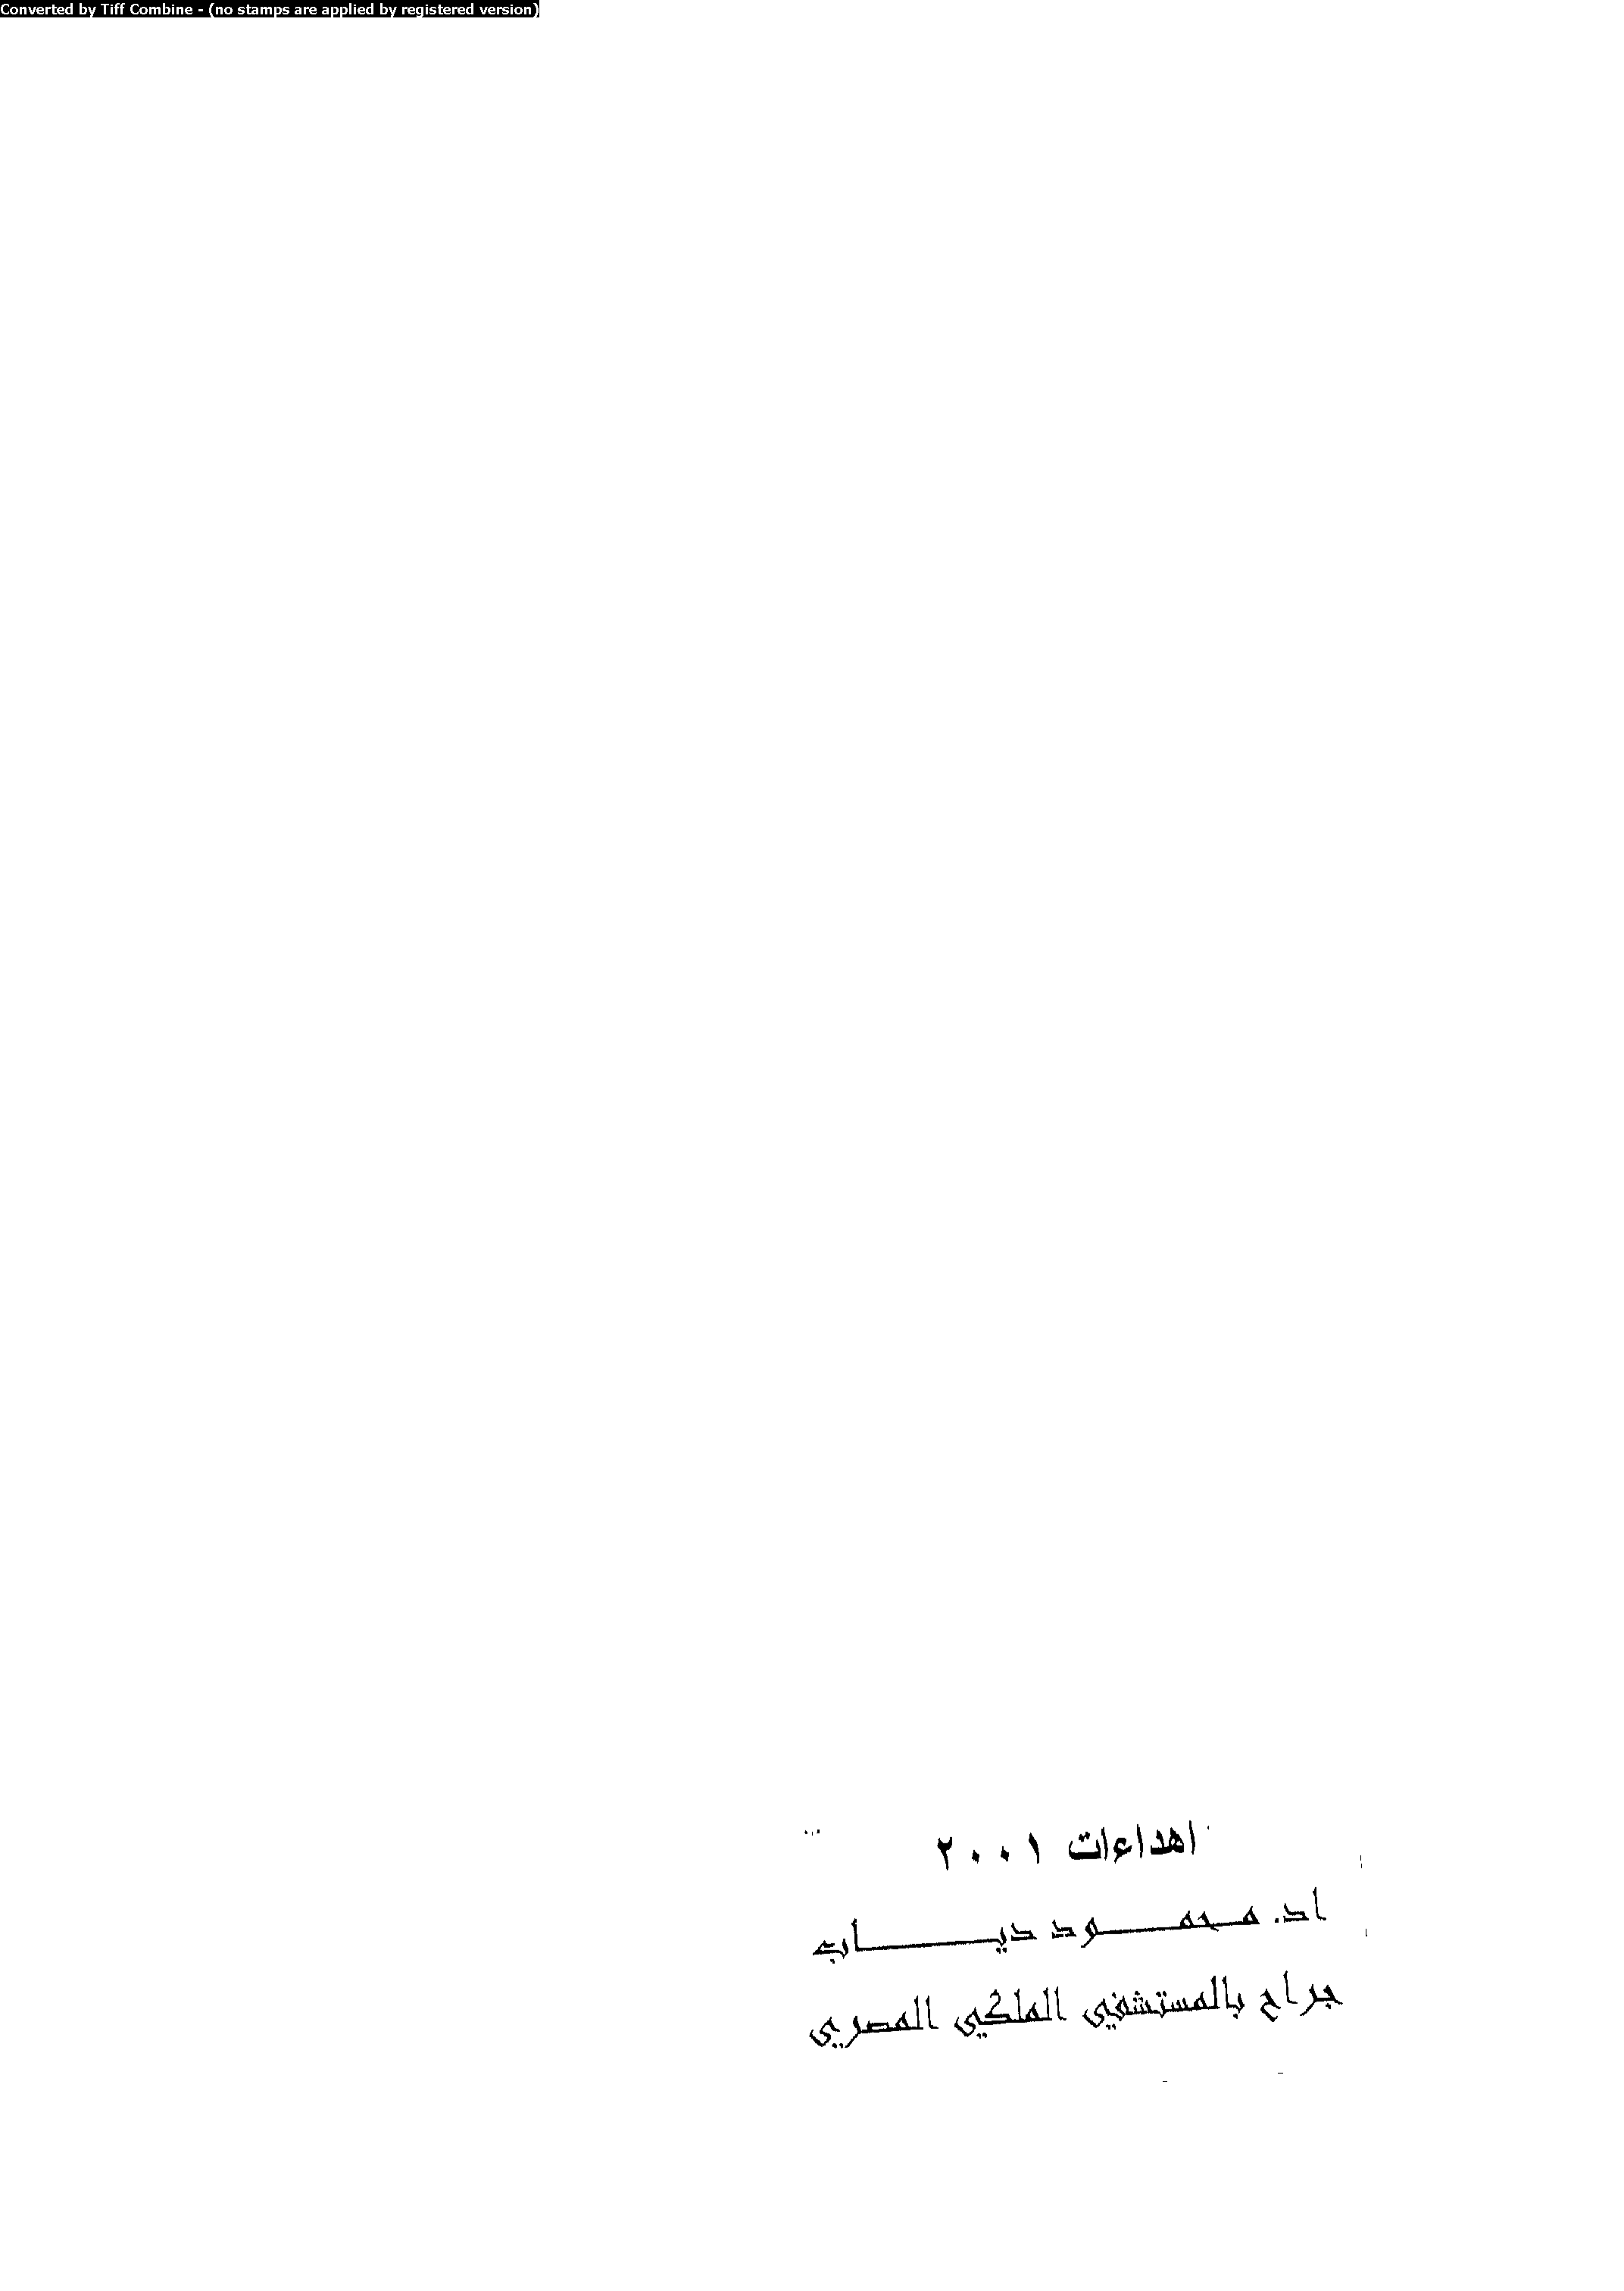 Converted by Tiff Combine - (no stamps are applied by registered version)
اهداءات ٢٠٠١
اد. محمود دياب
جراح بالمستشفي الملكي المصري